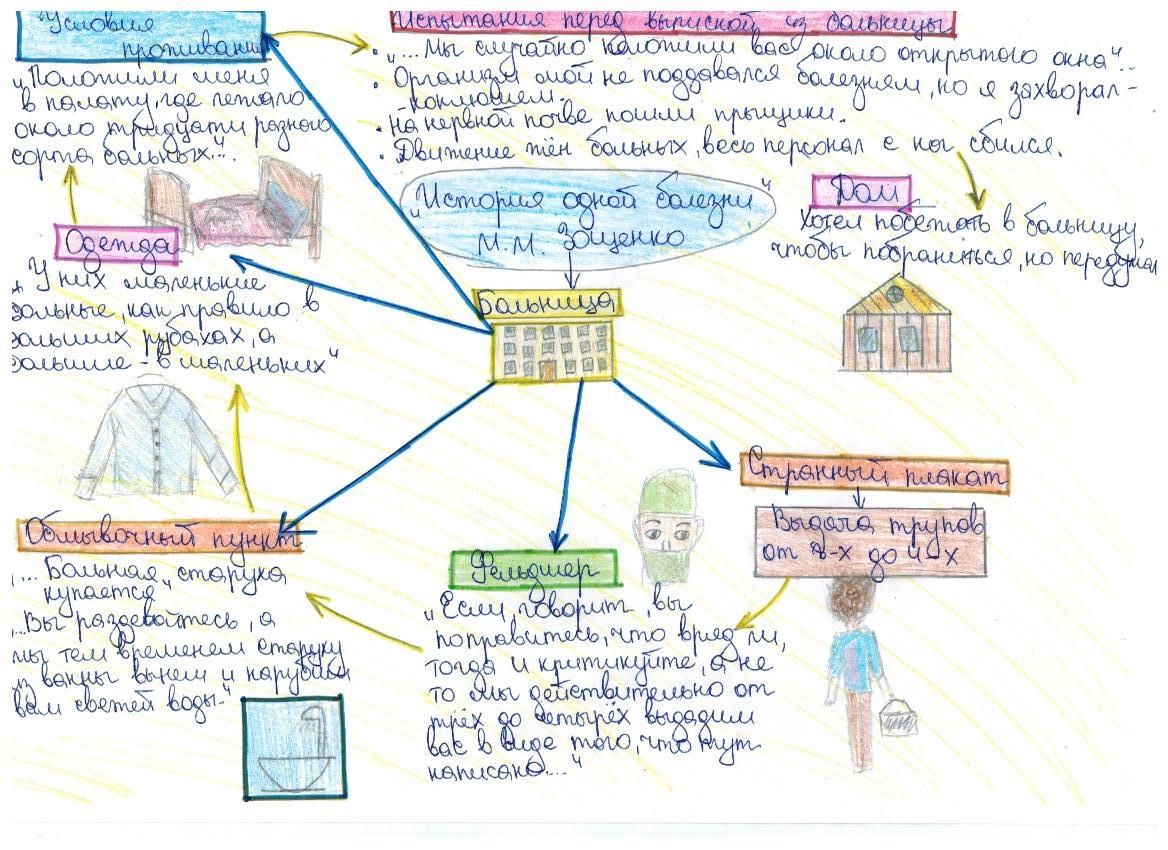 Условия
проживания
„Положили меня
в палату, где лежало
около тридцати разного
сорта больных“...
Испытания перед выпиской из больницы
• „...Мы случайно положили вас около открытого окна“...
• Организм мой не поддавался болезням, но я захворал -
- коклюшем.
• На нервной почве пошли прыщики.
• Движение жён больных, весь персонал с ног сбился.
„История одной болезни“
М.М. Зощенко
Дом
Хотел побежать в больницу,
чтобы побраниться, но передумал
Больница
Одежда
У них маленькие
больные, как правило в
больших рубахах, а
большие - в маленьких“
Странный плакат
Выдача трупов
от 3-х до 4-х
Обмывочный пункт
„... Больная старуха
купается“
„...Вы раздевайтесь, а
мы тем временем старуху
из ванны вынем и нарубаем
вам свежей воды.“
Фельдшер
„Если, говорит, вы
поправитесь, что вряд ли,
тогда и критикуйте, а не
то мы действительно от
трёх до четырёх выдадим
вас в виде того, что тут
написано...“